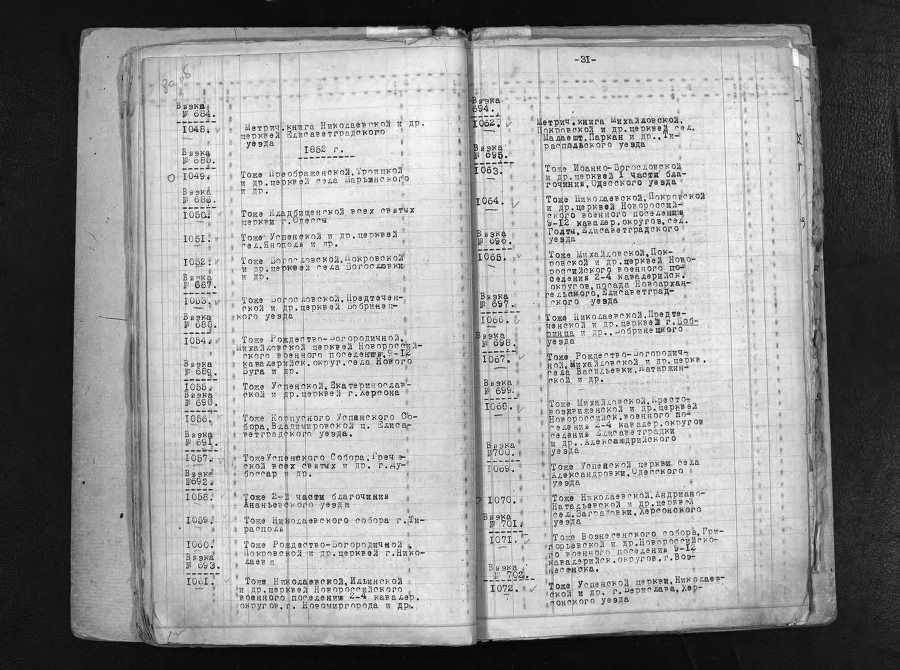 Вязка
№ 684.
1048.
Метрич.книга Николаевской и др.
церквей Елисаветградского
уезда
1852 г.
Вязка
№ 685.
1049.
Тоже Преображенской,Троицкой
и др.церквей села Марьинского
и др.
Вязка
№ 686.
1050.
Тоже Кладбищенской всех святых
церкви г.Одессы
1051.
Тоже Успенской и др.церквей
и др.
1052.
Тоже Богословской,Покровской
и др.церквей села Богословки
и др.
Вязка
№ 687.
1053.
Тоже Богословской,Предтечен-
ской и др.церквей Бобринец-
кого уезда
Вязка
№ 688.
1054.
Тоже Рождество-Богородичной,
Михайловской церквей Новороссий-
ского военного поселения,9-12
кавалерийск.округ.села Нового
Буга и др.
Вязка
№ 689.
1055.
Тоже Успенской,Екатеринослав-
ской и др.церквей г.Херсона
Вязка
№ 690.
1056.
Тоже Корпусного Успенского Со-
бора,Владимировской ц. Елиса-
ветградского уезда.
Вязка
№ 691.
1057.
ТожеУспенского Собора,Грече-
ской всех святых и др. г.Ду-
боссар и др.
Вязка
№692.
1058.
Тоже 2-й части благочиния
Ананьевского уезда
1059.
Тоже Николаевского собора г.Ти-
располь
1060.
Тоже Рождество-Богородичной,
Покровской и др.церквей г.Нико-
лаева
Вязка
№ 693.
1061.
Тоже Николаевской,Ильинской
и др.церквей Новороссийского
военного поселения 2-4 кавалер.
округов,г. Новомиргорода и др.
-31-
Вязка
694.
1062.
Метрич.книга Михайловской,
Покровской и др.церквей сел.
Малаешт,Паркан и др.,Ти-
распольского уезда
Вязка
№ 695.
1063.
Тоже Иоанно-Богословской
и др.церквей 1 части бла-
гочиния,Одесского уезда
1064.
Тоже Николаевской,Покровской
и др.церквей Новороссий-
ского военного поселения
9-12 кавалер.округов,сел.
Голты,Елисаветградского
уезда
Вязка
№ 696.
1065.
Тоже Михайловской,Пок-
ровской и др.церквей Ново-
российского военного по-
селения 2-4 кавалерийск.
округов,посада Новоархан-
гельского,Елисаветград-
ского уезда
Вязка
№ 697.
1066.
Тоже Николаевской,Предте-
ченской и др.церквей г.Боб-
ринца и др.,Бобринецкого
уезда
Вязка
№ 698.
1067.
Тоже Рождество-Богородич-
ной,Михайловской и др.церкв.
села Васильевки,Катаржин-
ской и др.
Вязка
№ 699.
1068.
Тоже Михайловской,Кресто-
воздвиженской и др.церквей
Новороссийск.военного по-
селения 2-4 кавалер.округов
селения Елисаветградки
и др.,Александрийского
уезда
Вязка
№700.
1069.
Тоже Успенской церкви,села
Александровки,Одесского
уезда
1070.
Тоже Николаевской,Андриано-
Натальевской и др.церквей
сел.Заградовки,Херсонского
уезда
Вязка
№ 701.
1071.
Тоже Вознесенского собора,Гри-
горьевской и др.Новороссийско-
го военного поселения 9-12
кавалерийск.округов,г.Воз-
несенска.
Вязка
№ 702.
1072.
Тоже Успенской церкви,Николаев-
ской и др. г.Берислава,Хер-
сонского уезда